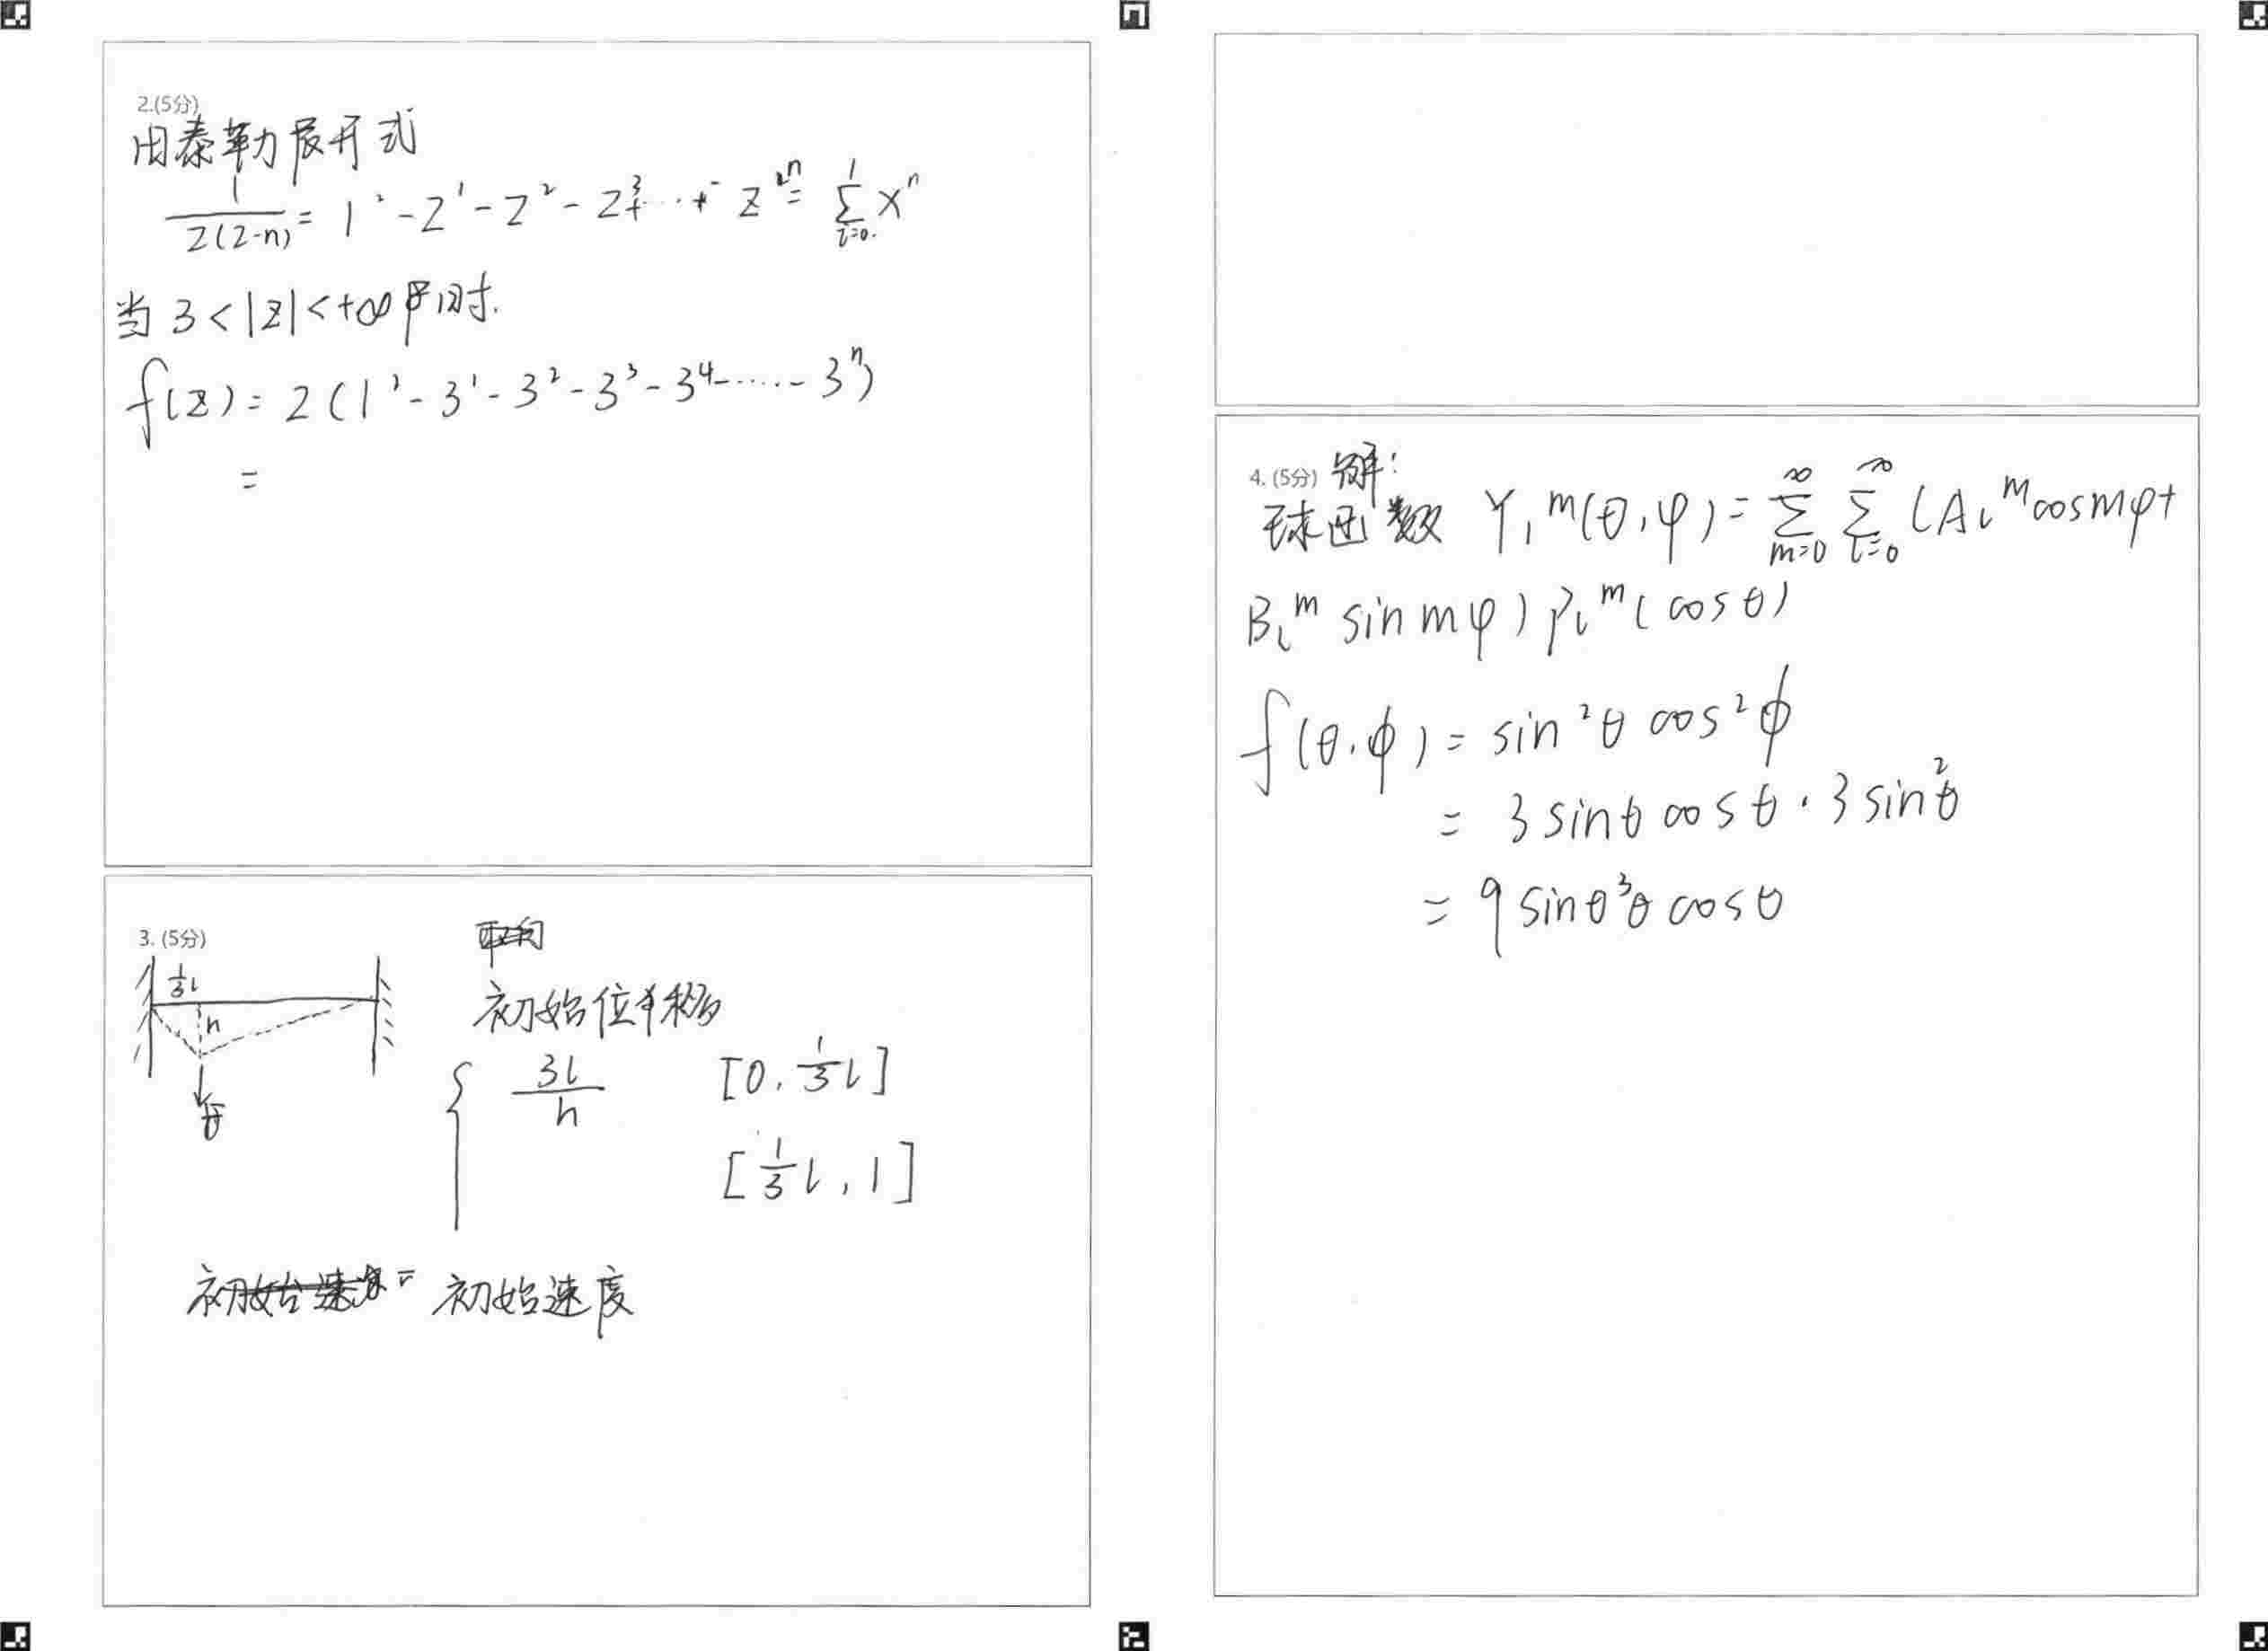 2.(5分)
由泰勒展开式
1/z(z-n) = 1² - z¹ - z² - z³ + ... + - zⁿ = Σ(i=0, 1) xⁿ
当 3 < |z| < +∞ 时.
f(z) = 2(1² - 3¹ - 3² - 3³ - 3⁴ - ...... - 3ⁿ)
=
3. (5分)
1/3 l
h
F
初始位移
{ 3l/h [0, 1/3 l]
[1/3 l, 1]
初始速度
4. (5分) 解:
球函数 Y₁ᵐ(θ,φ) = Σ(m=0, ∞) Σ(l=0, ∞) (Aₗᵐ cos mφ +
Bₗᵐ sin mφ) Pₗᵐ(cos θ)
f(θ.ϕ) = sin²θ cos²ϕ
= 3 sinθ cosθ · 3 sin²θ
= 9 sinθ³θ cosθ